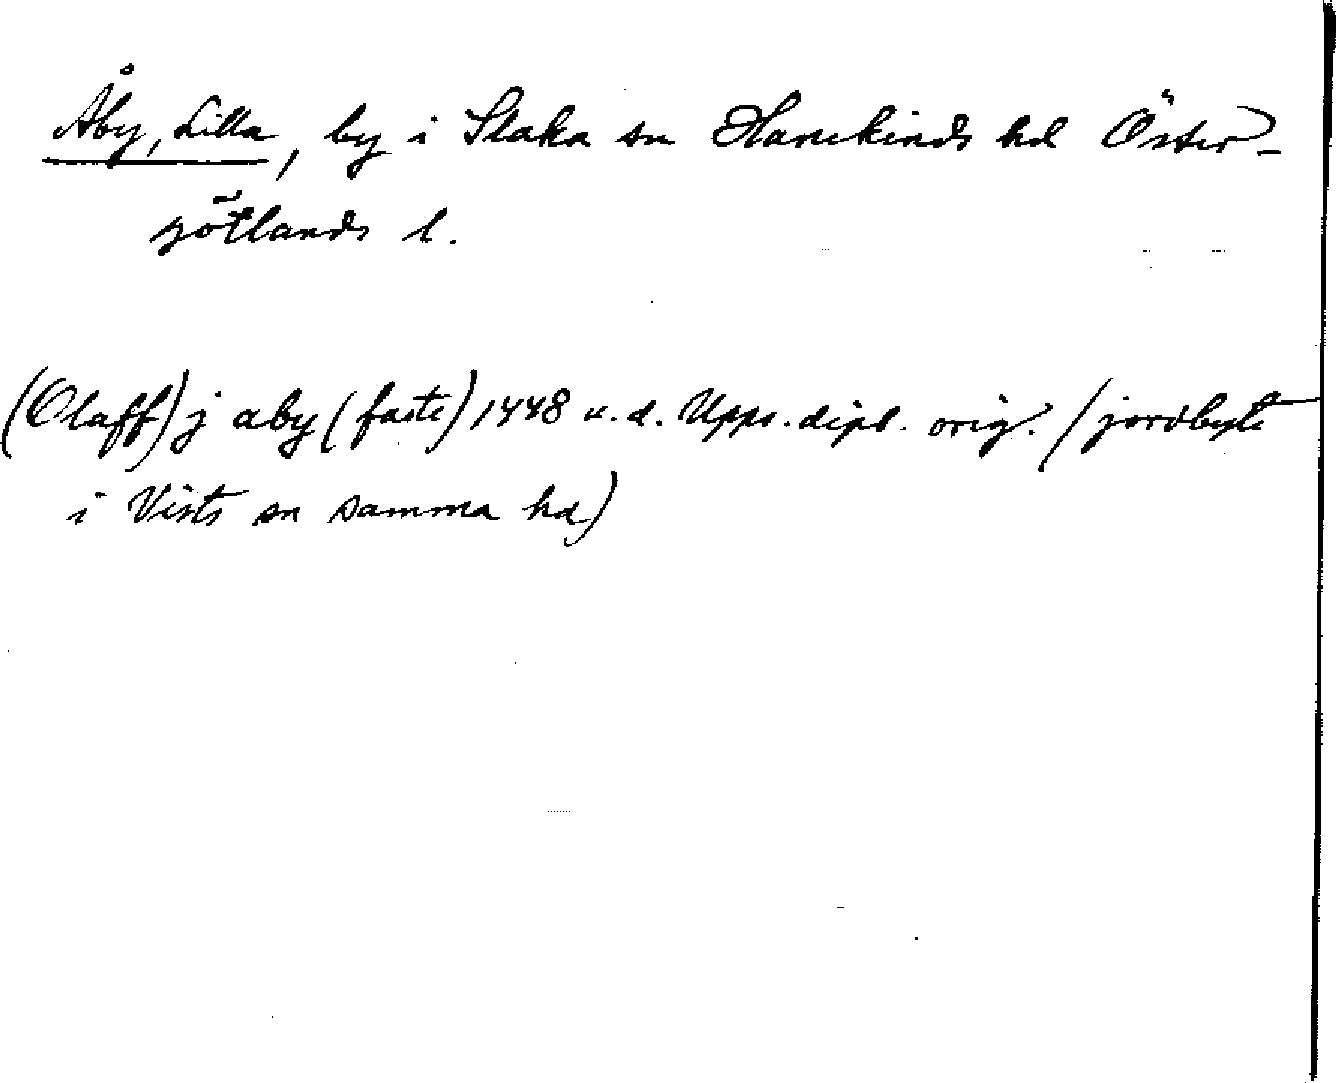 Åby, Lilla, by i Slaka sn Hanekinds hd Öster-
götlands l.
(Olaff) j aby (faste) 1448 u.d. Upps. dipl. orig. (jordbyte
i Vists sn samma hd)